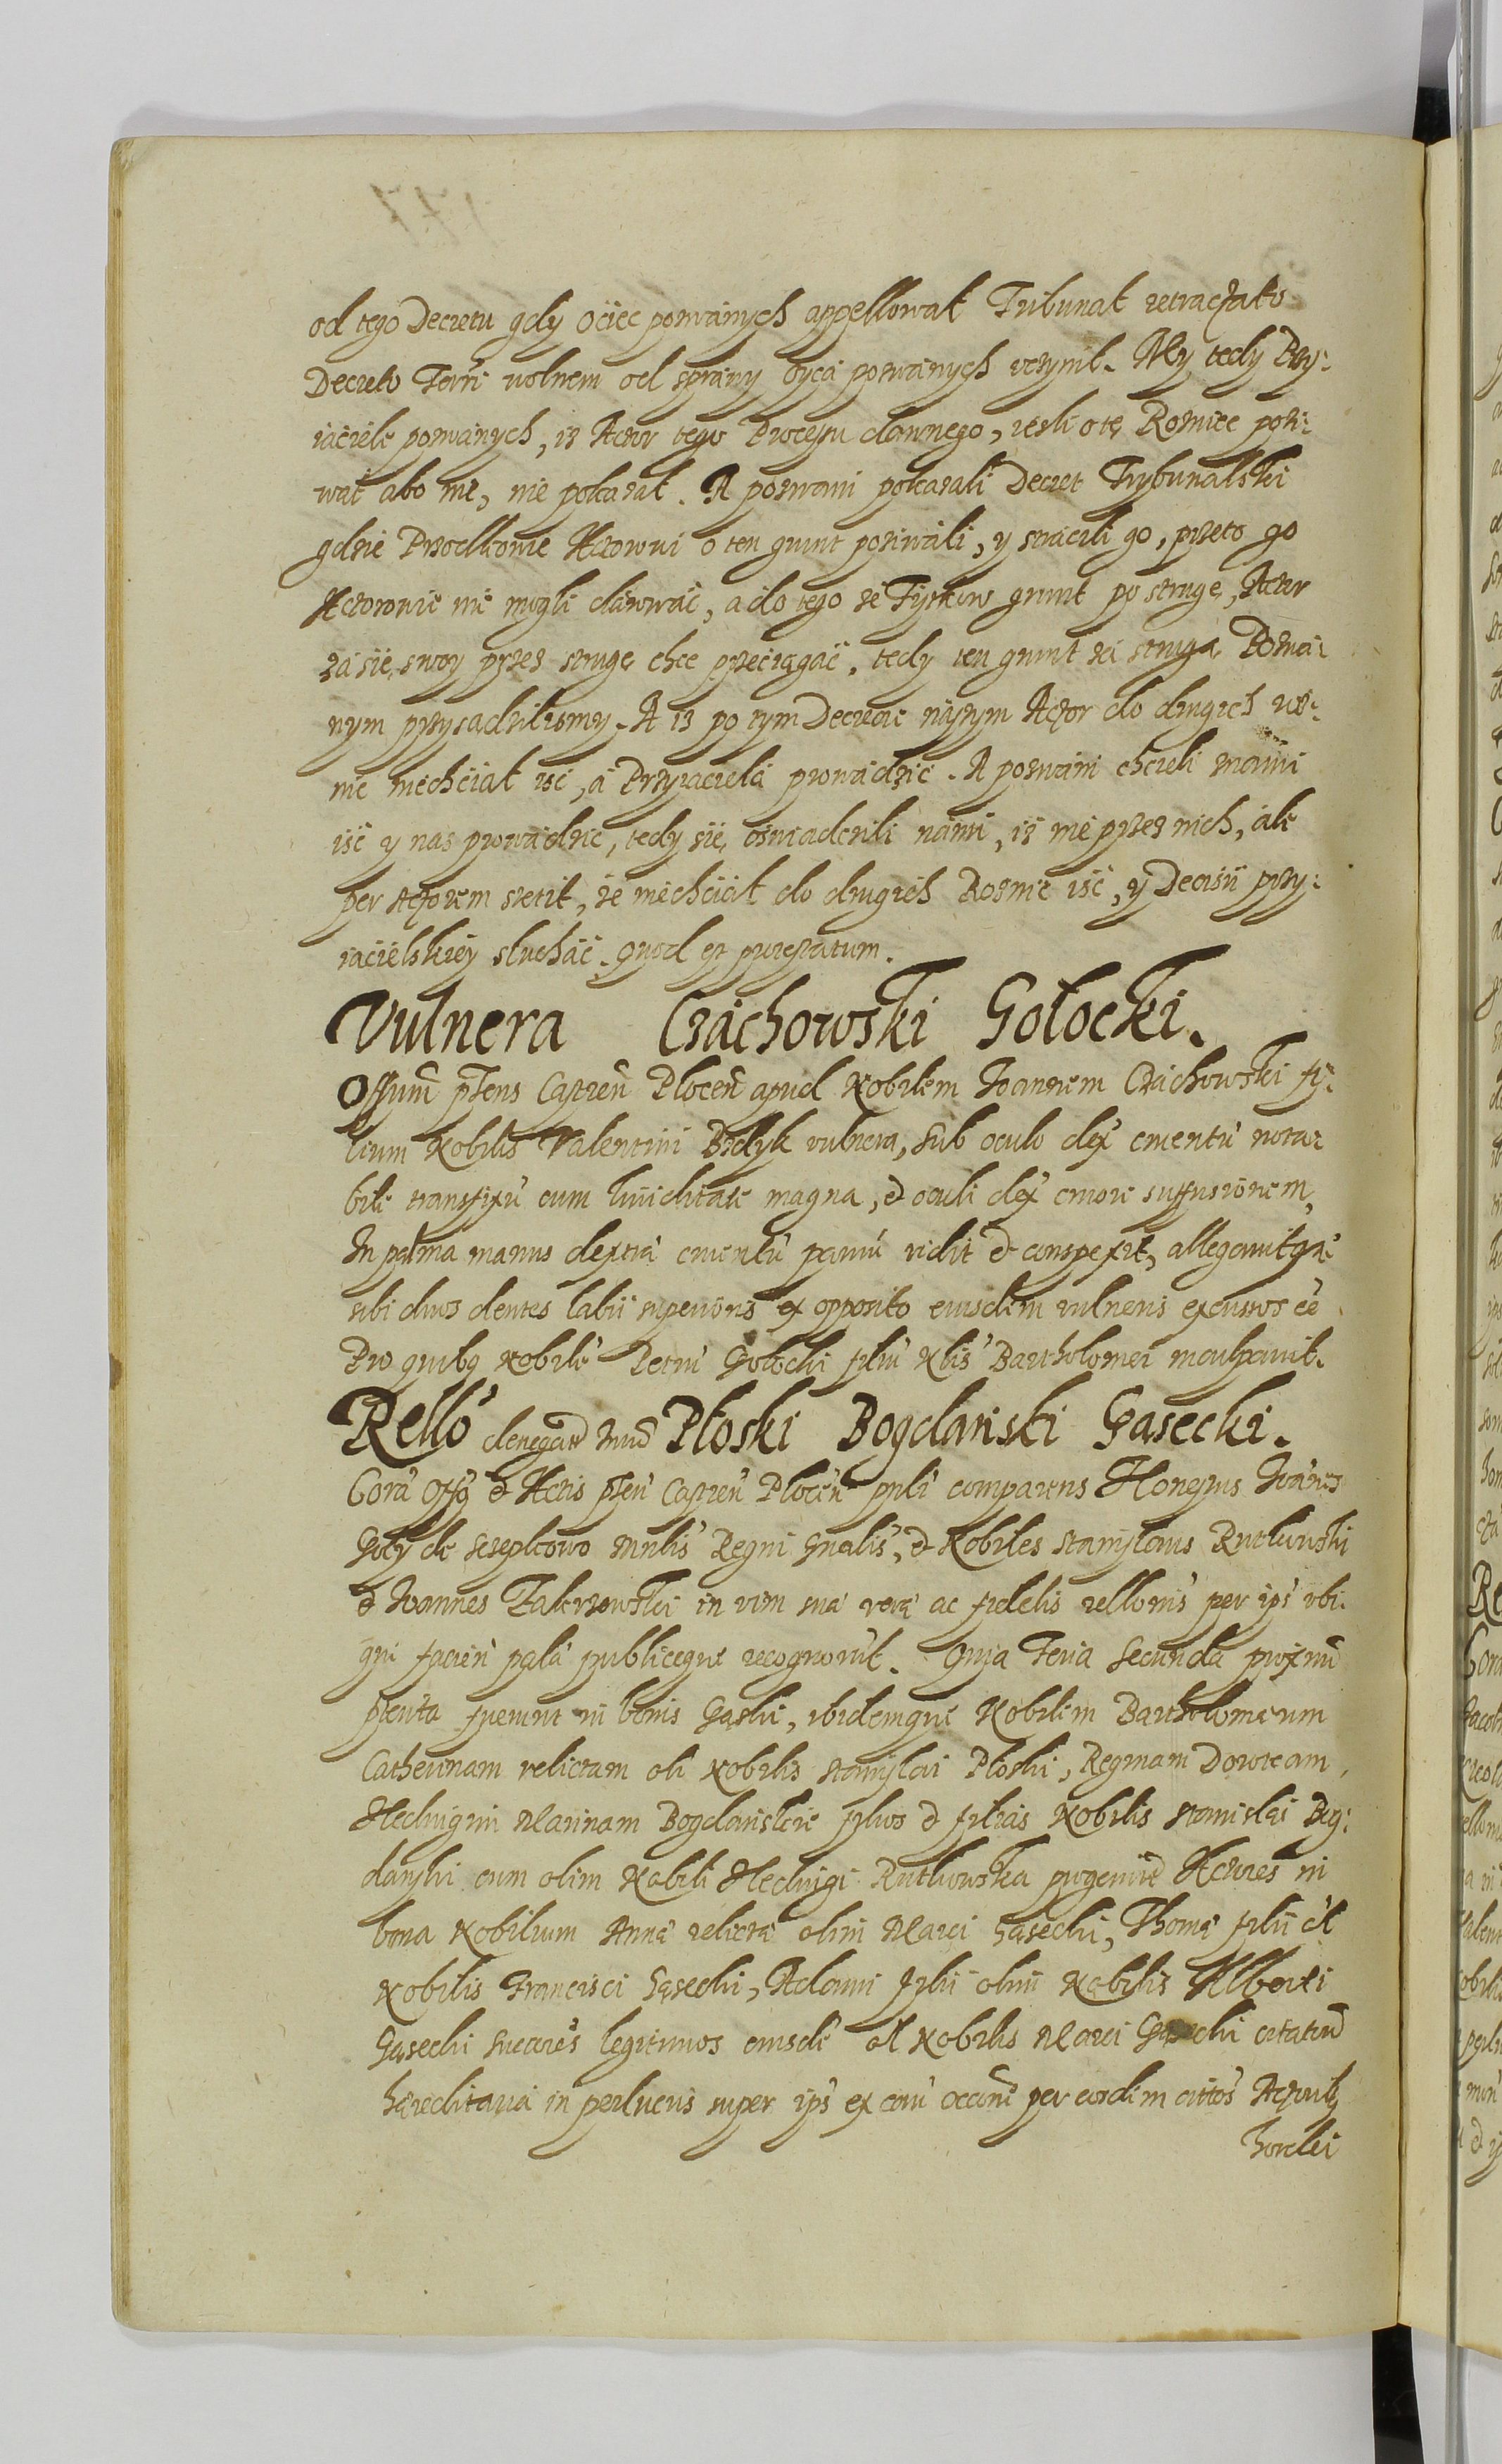 od tego Decretu gdy Ociec poswanych appellował Tribunał retractato
Decreto Terri volnem od sprawy oyca poswanych vczynił. My tedy Przy:
iaciele poswanych, iz Actor tego Processu dawnego, iesli o tę Roznicę pozi:
wał abo nie, nie pokazał. A poswani pokazali Decret Trybunalski
gdzie Przodkowie Actorowi o ten grunt poziwali, y stracili go, przeto go
Actorowie nie mogli darowac, a do tego ze Tyszkow grunt po strugę, Actor
zasię swoy przez strugę chce przeciągac, tedy ten grunt za strugą Poswa:
nym przysądzilismy. A iz po tym Decrecie naszym Actor do drugich
nie niechciał isc, a Przyiaciela prowadzic. A poswani chcieli znami
isc y nas prowadzic, tedy się oswiadczili nami, iz nie przez nich, ale
per Actorem stetit, ze niechciał do drugich Roznic isc, y Decisii przy:
iacielskiey słuchac. quod est protestatum.
Vulnera Czachowski Gołocki.
Offium ptens Castren Plocen apud Nobilem Joannem Czachowski fi:
lium Nobilis Valentini Bździk vulnera, Sub oculo dex cruentu nota:
bile transfixu cum liuiditate magna, et oculi dex cruore suffusionem,
In palma manus dextra cruentu paruu vidit et conspexit, allegauitq
sibi duos dentes labii superioris ex opposito eiusdem vulneris excussos ee
Pro quibq Nobile Petru Gołocki filiu Nlis Bartholomei inculpauit.
Rello denegat Płoski Bogdanski Gąsecki.
Cora Offo et Actis pten Castren Plocen psnli comparens Honestus Joanes
Goły de Szczepkowo Mnlis Regni Gnalis, et Nobiles Stanislaus Rutkowski
et Joannes Zakrzewski in vim sua vera ac fidelis rellonis per ips vbi:
qui facien pala publiceque recognorut. Quia Feria Secunda proxime
pterita fuerunt in bonis Gąski, ibidemque Nobilem Bartholomeum
Catherinam relictam oli Nobilis Stanislai Płoski, Reginam Doroteam,
Hedwigim Marinam Bogdanskie filios et filias Nobilis Stanislai Bog:
danski cum olim Nobili Hedwigi Rutkowska progenit Actores in
bona Nobilium Anna relicta olim Marci Gąsecki, Thoma filii ol
Nobilis Francisci Gąsecki, Adami filii olim Nobilis Alberti
Gąsecki Sucores legitimos eiusde ol Nobilis Marci Gąsecki citatos
haereditaria in perlucris super ips ex cau occone per eosdem cittos Actorib
hordei